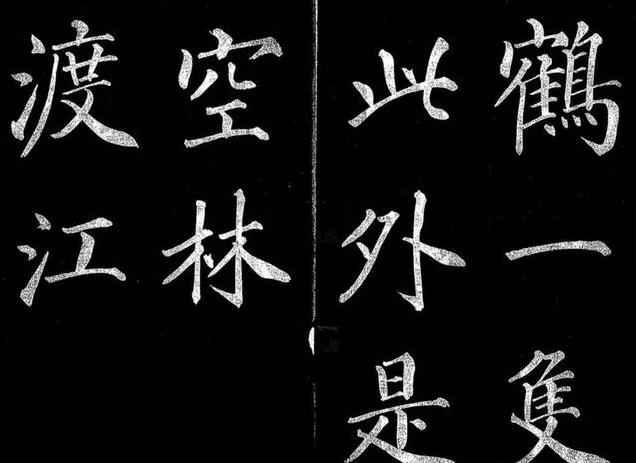 鶴一隻
此外是
空林
渡江